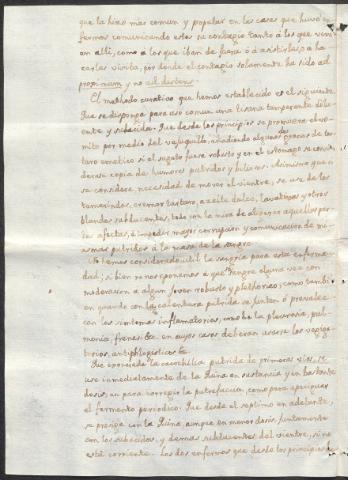 que la hizo mas comun y popular en las casas que huvo en
fermos comunicandose este su contagio tanto à los que vivi
an alli, como à los que iban de fuera ó à asistirlos, ó à ha
cerles visita, por donde el contagio solamente ha sido ad
proximum y no ad distans.
El methodo curativo que hemos establecido es el siguiente
Que se disponga para uso comun una tisana temperante dilu
ente y subacida. Que desde los principios se promueva el vo
mito por medio del vejuquillo, añadiendo algunos granos de tar
taro emetico si el sugeto fuere robusto y en el estomago se consi
derase copia de humores putridos y biliosos. Asimismo que si
se considera necesidad de mover el vientre, se use de los
tamarindos, cremor tartaro, azeite dulce, lavativas y otros
blandos subducentes, todo con la mira de disponer aquellas par
tes afectas, è impedir mayor corrupcion y comunicacion de mi
asmas putridos à la masa de la sangre.
No hemos considerado util la sangria para esta enferme
dad; si bien no nos oponemos à que siempre alguna vez con
moderacion à algun joven robusto y plethorico; como tambi
en quando con la calentura putrida se juntan ó prevalez
can los sintomas inflamatorios, como la pleuresia, pul
monia, frenesi &c. en cuyos casos deberan usarse los vegiga
torios, antiphlogisticos &c.
Que evacuada la cacochilia putrida de primeras vias, se
use inmediatamente de la Quina en sustancia y en bastante
dosis, ya para corregir la putrefaccion, como para apaciguar
el fermento periodico. Que desde el septimo en adelante,
se prosiga con la Quina, aunque en menor dosis, juntamente
con los subacidos, y demas subducentes del vientre, si no
està corriente. Los dos enfermos que desde los principios